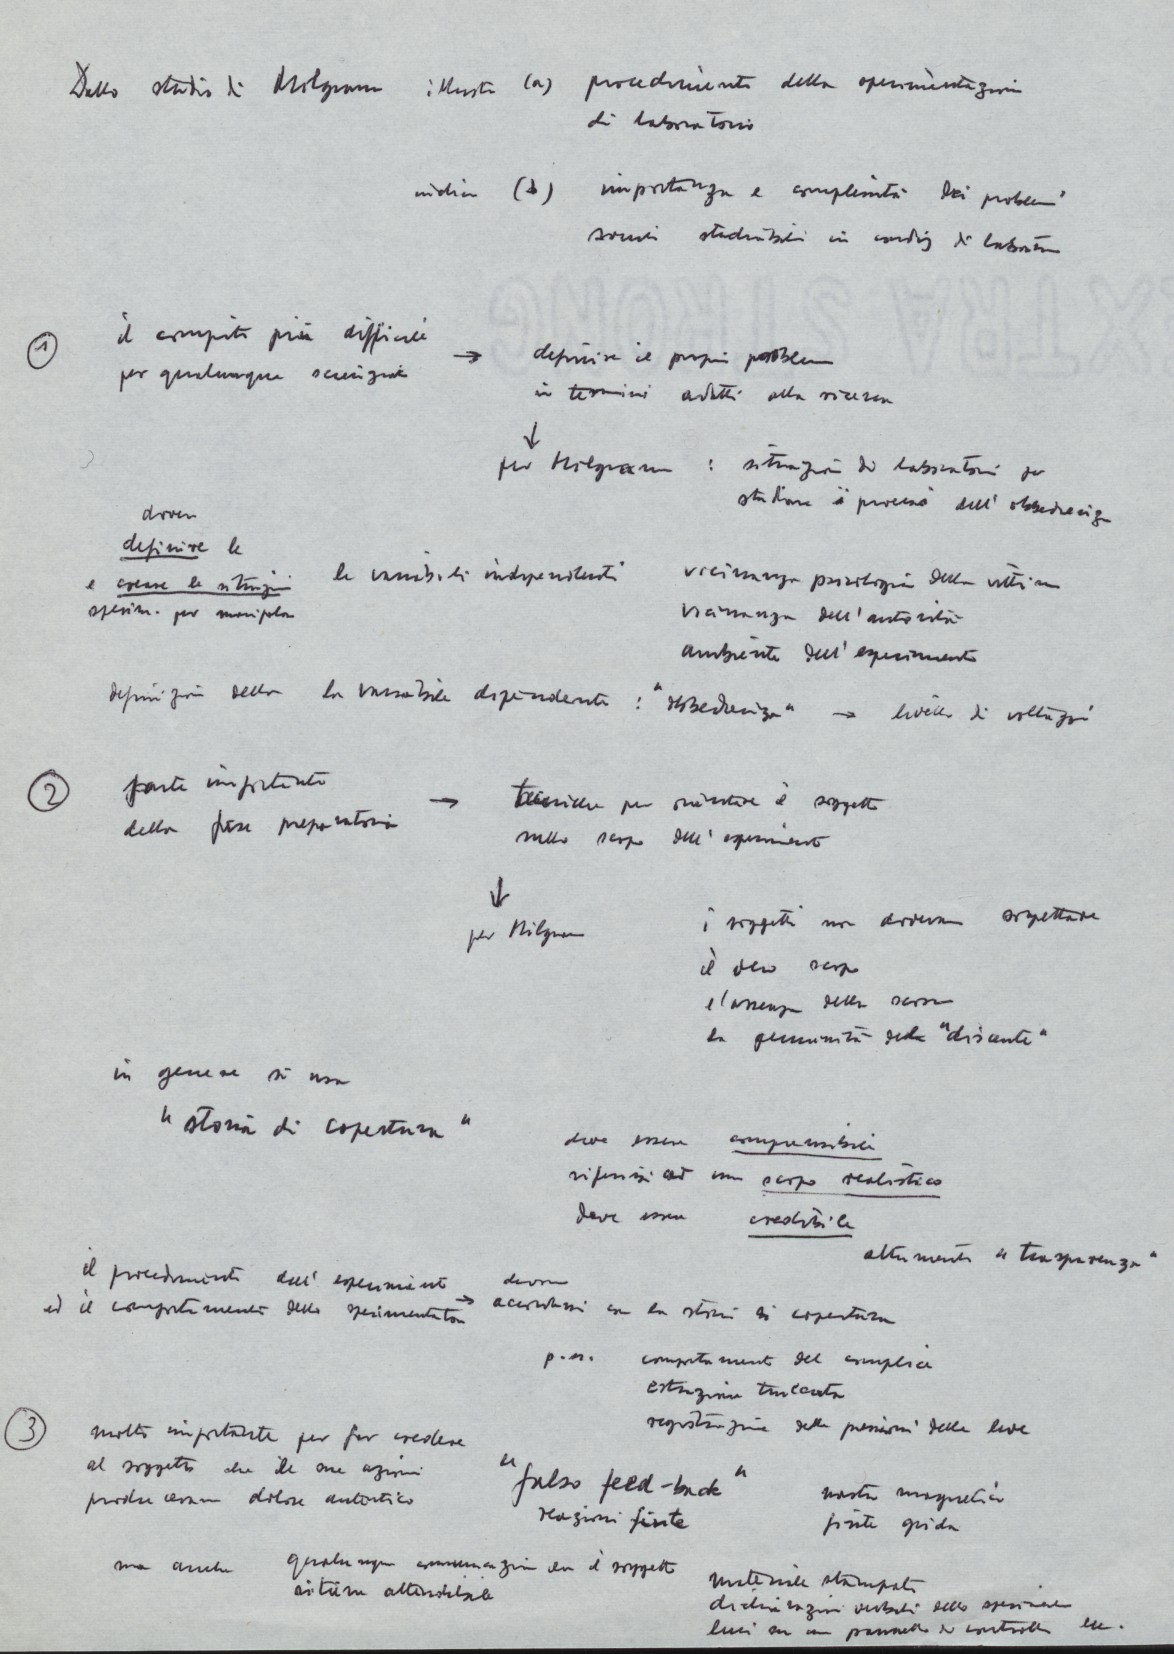 Dallo studio di Milgram illustra (a) procedimento della sperimentazione
di laboratorio
indica (b) importanza e complessità dei problemi
sociali studiabili in condiz di laborator
EXTRA STRONG
1 il compito più difficile
per qualunque scienziato
→ definire il proprio problema
in termini adatti alla ricerca
↓
per Milgram : situazioni di laboratorio per
studiare i processi dell'obbedienza
dover
definire le
e creare le situazioni
sperim. per manipolare
le variabili indipendenti
vicinanza psicologica della vittima
vicinanza dell'autorità
ambiente dell'esperimento
definizione della la variabile dipendente : "obbedienza" → livello di voltaggio
2 parte importante
della fase preparatoria
→ tecniche per orientare il soggetto
sullo scopo dell'esperimento
↓
per Milgram
i soggetti non dovevano sospettare
il vero scopo
e l'assenza della scossa
la genuinità della "discente"
in genere si usa
"storia di copertura"
deve essere comprensibile
riferirsi ad uno scopo realistico
deve essere credibile
altrimenti "trasparenza"
il procedimento dell'esperimento
ed il comportamento dello sperimentatore
→ devono
accordarsi con la storia di copertura
p. es. comportamento del complice
estrazione truccata
registrazione delle pressioni delle leve
3 molto importante per far credere
al soggetto che le sue azioni
producevano dolore autentico
"falso feed-back"
reazioni finte
nastro magnetico
finte grida
ma anche qualunque comunicazione che il soggetto
ritiene attendibile
materiale stampato
dichiarazioni verbali dello sperimentatore
luci su un pannello di controllo ecc.